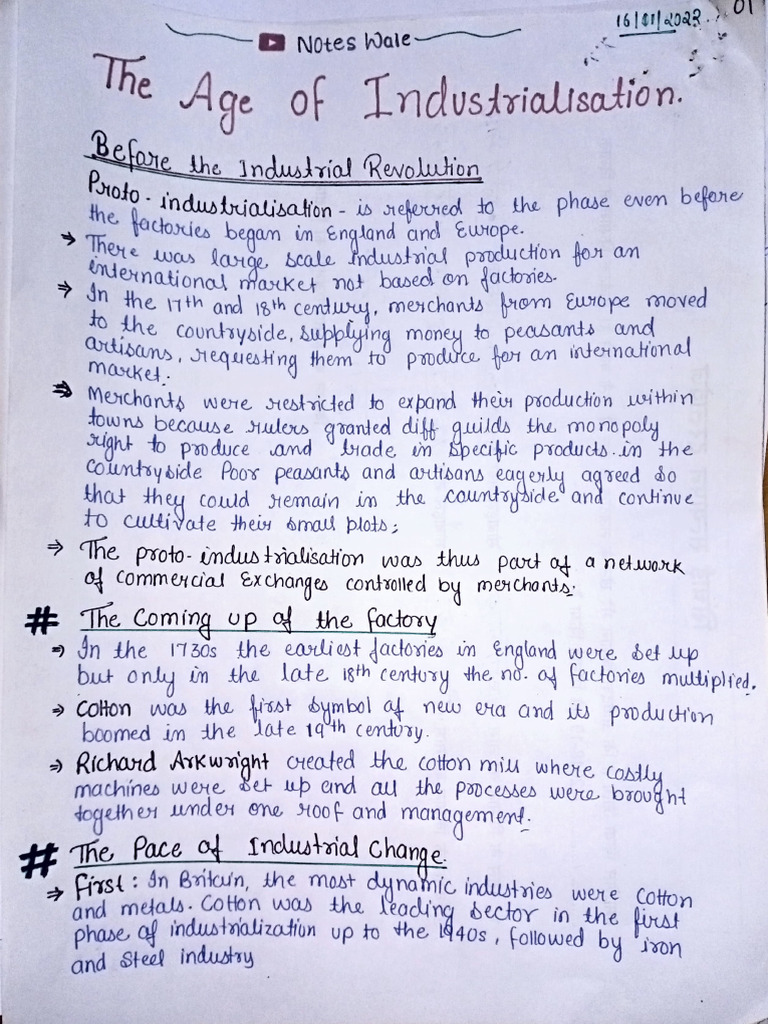 16/01/2023
01
Notes Wale
The Age of Industrialisation.
Before the Industrial Revolution
Proto-industrialisation - is referred to the phase even before
the factories began in England and Europe.
⇒ There was large scale industrial production for an
international market not based on factories.
⇒ In the 17th and 18th century, merchants from Europe moved
to the countryside, supplying money to peasants and
artisans, requesting them to produce for an international
market.
⇒ Merchants were restricted to expand their production within
towns because rulers granted diff guilds the monopoly
right to produce and trade in specific products. in the
countryside Poor peasants and artisans eagerly agreed so
that they could remain in the countryside and continue
to cultivate their small plots;
⇒ The proto-industrialisation was thus part of a network
of commercial Exchanges controlled by merchants.
# The Coming up of the factory
⇒ In the 1730s the earliest factories in England were set up
but only in the late 18th century the no. of factories multiplied.
⇒ Cotton was the first symbol of new era and its production
boomed in the late 19th century.
⇒ Richard Arkwright created the cotton mill where costly
machines were set up and all the processes were brought
together under one roof and management.
# The Pace of Industrial Change.
⇒ First: In Britain, the most dynamic industries were cotton
and metals. Cotton was the leading sector in the first
phase of industrialization up to the 1940s, followed by iron
and steel industry